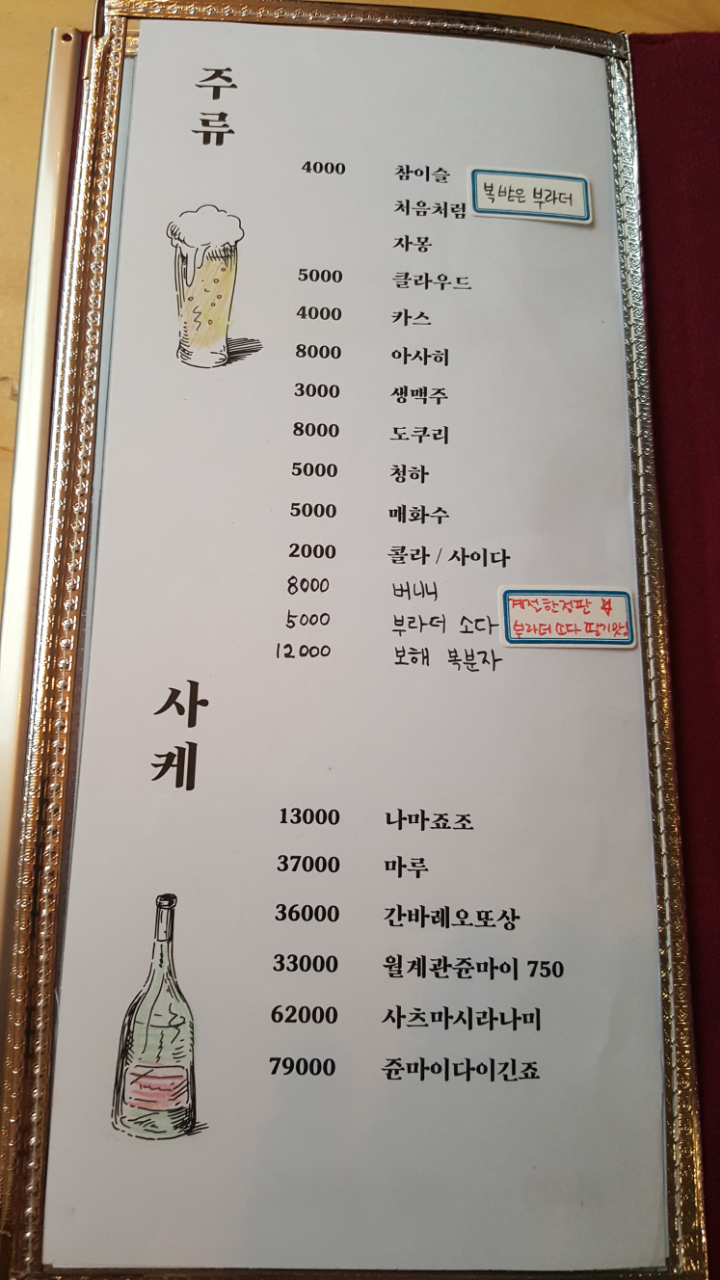 주류
4000 참이슬 복받은 부라더
처음처럼
자몽
5000 클라우드
4000 카스
8000 아사히
3000 생맥주
8000 도쿠리
5000 청하
5000 매화수
2000 콜라 / 사이다
8000 버니니
계절한정판 ☆
5000 부라더 소다 부라더 소다 딸기맛!
12000 보해 복분자
사케
13000 나마죠조
37000 마루
36000 간바레오또상
33000 월계관쥰마이 750
62000 사츠마시라나미
79000 쥰마이다이긴죠